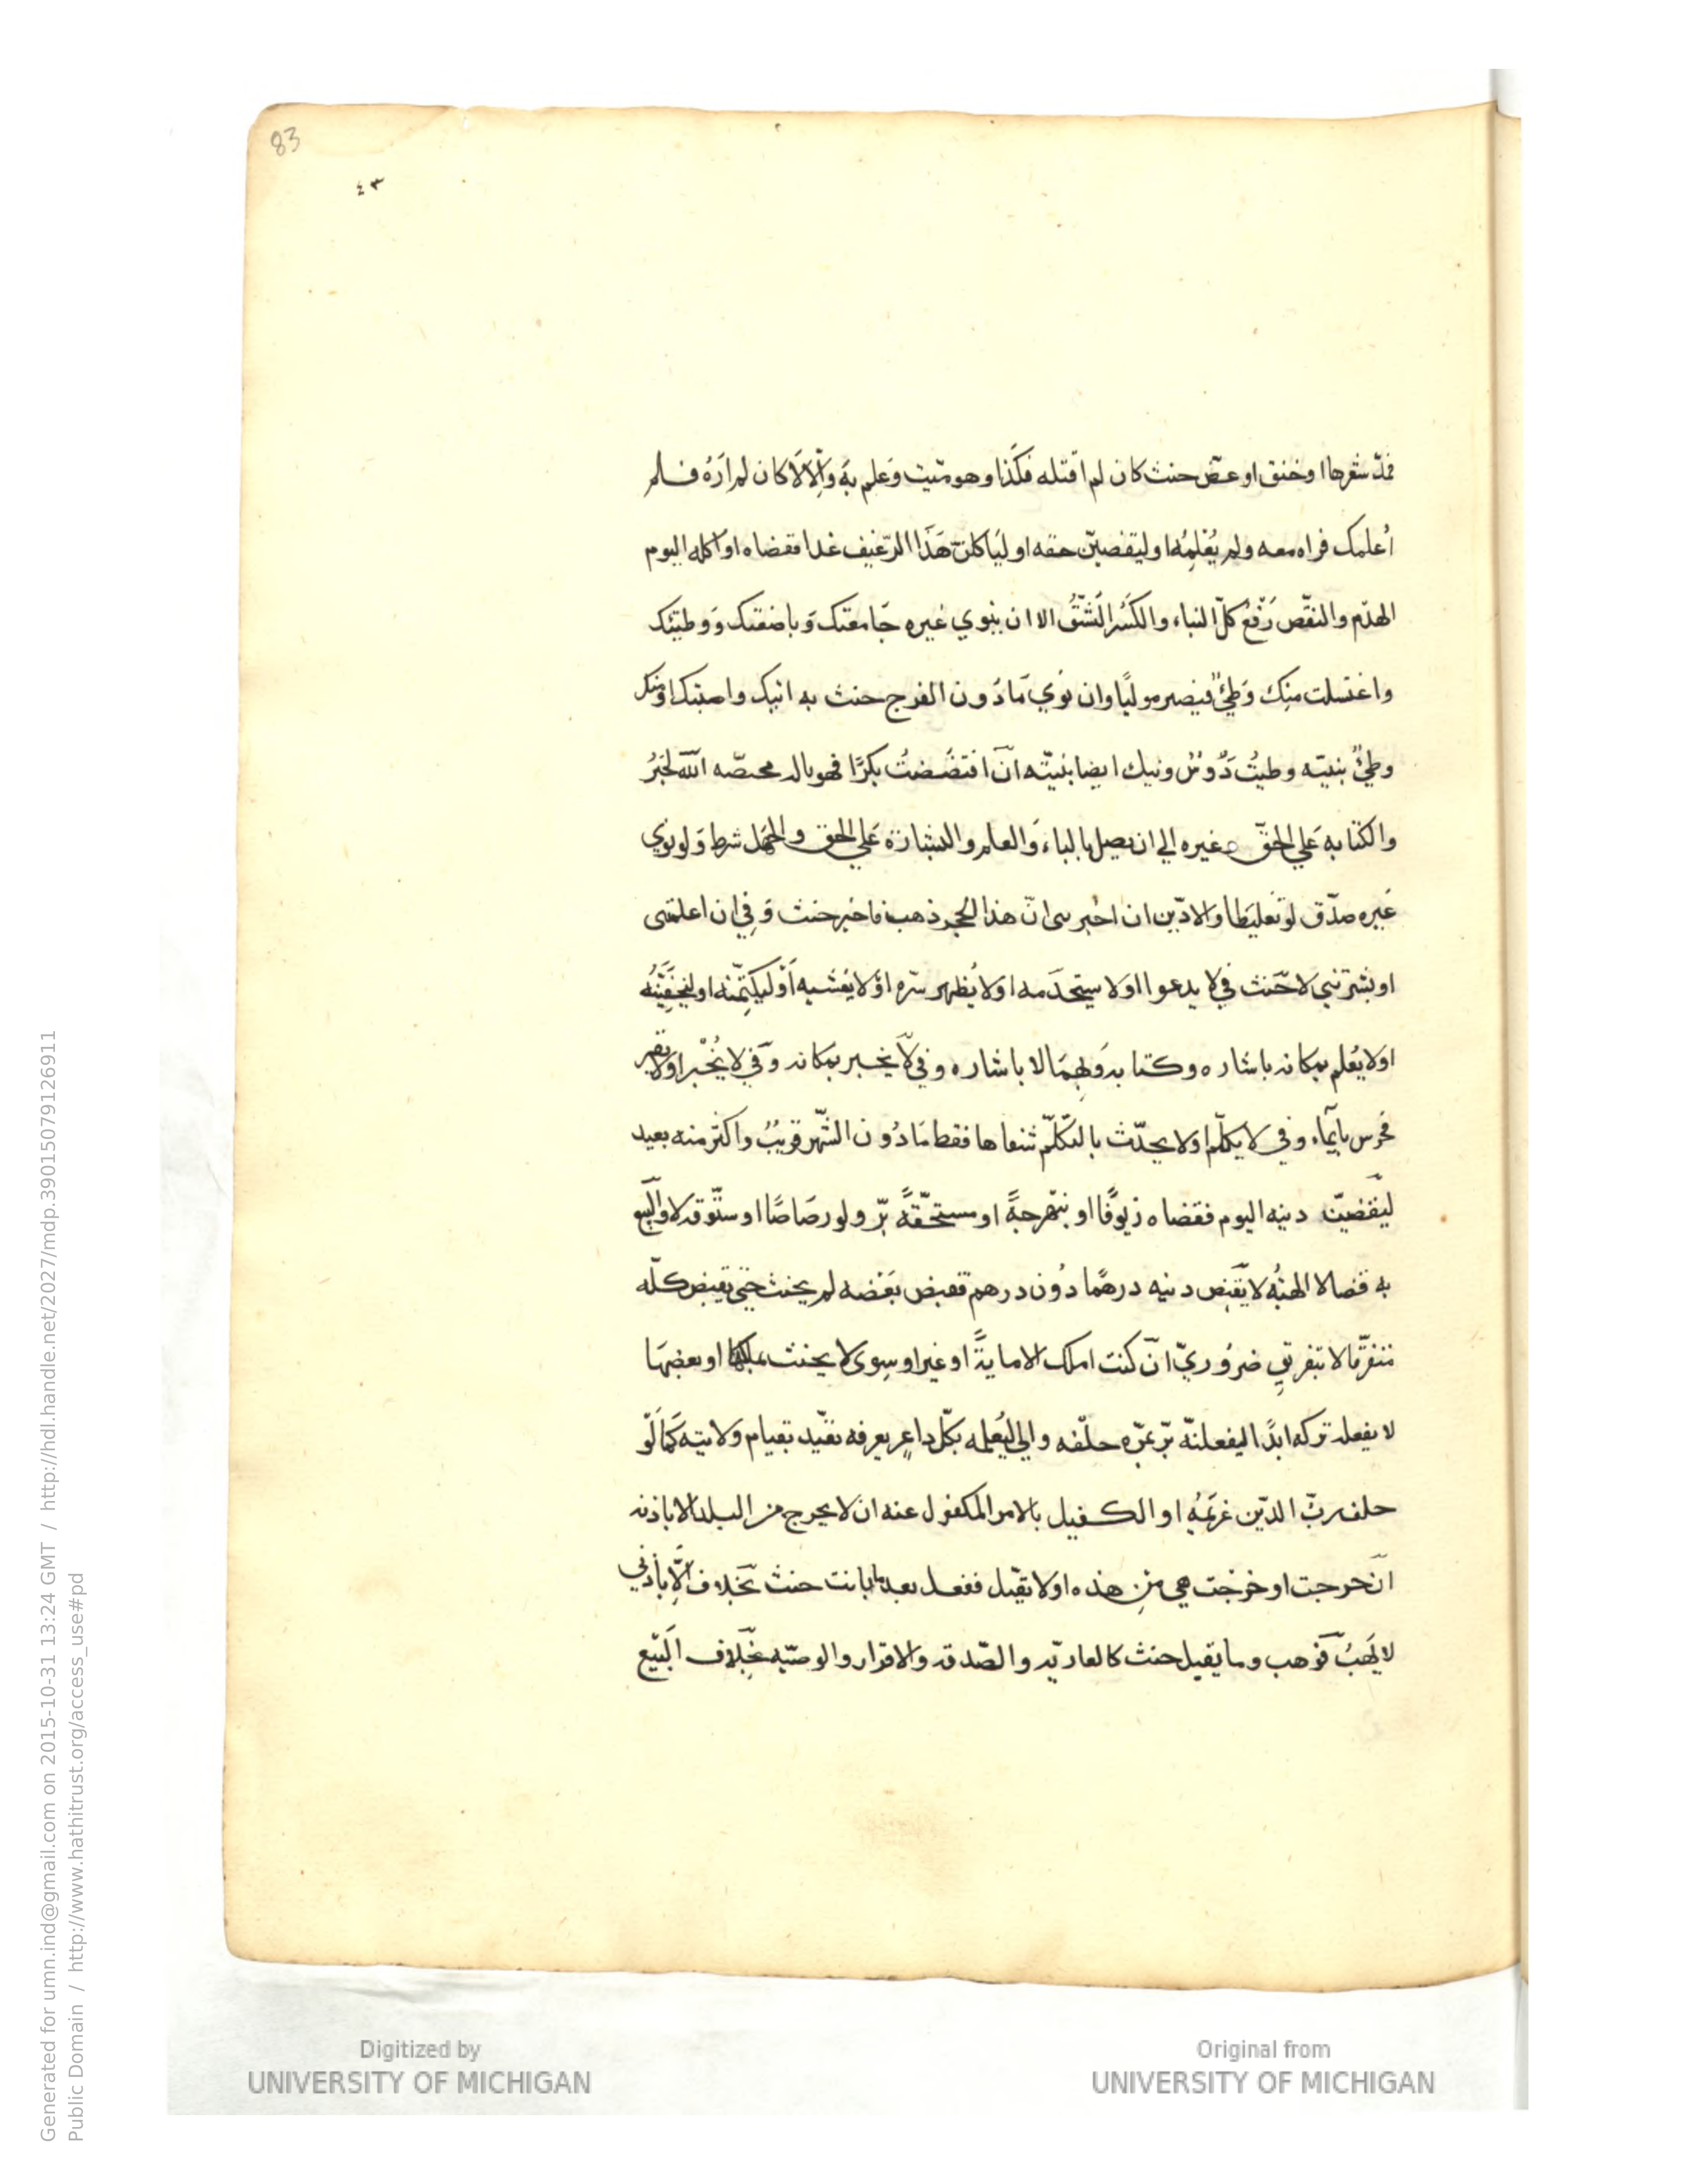 83
٤٣
فمدّ شعرها او خنق او عضّ حنث كان لم اقتله فكذا وهو ميّت وعلم به وإلّا لَا كان لم ارَهُ فلم
أعلمك فراه معه ولم يُعْلِمْه او ليقضينّ حقه او لياكلنّ هَذَا الرّغيف غدا فقضاه او اكله اليوم
الهدم والنقض رَفْعُ كلّ البناء والكَسْر الشَّقُّ الا ان ينوي غيره جَامعتك وَباضعتك وَوطيتك
واغتسلت منك وَطْيٌ فيصير موليًا وان نوي مَا دُون الفرج حنث به اتيك واصبتك او منك
وطيٌ بنيّته وطيتُ دَوْسٌ ونيك ايضا بنيّته انْ افتضَضتُ بكرًا فهو بالد
والكتابه عَلي الحقّ وغيره الي ان يصل بالباء وَالعلم والبشارة عَلي الحق والجهل شرط وَلو نوي
غيره صدّق لو تغليظا والا ديّن ان اخبرتني انّ هذا الحجر ذهب فاخبر حنث وَفي ان اعلمتني
او بشّرتني لا حنث في لا يدعو ااو لا يستخدمه او لا يُظهر سّره او لا يفشيه أَوْ ليكتمّنه او ليخفِيَنّه
او لا يُعلم بمكانه باشاره وكتابه وَلهمَا لا باشاره وفي لا يخبر بمكانه وَفي لا يُخْبر او لا يقر
خرس بايماء وفي لا يكلّم او لا يحدّث بالتكلّم شفاها فقط مَا دُون الشّهر قريبٌ واكثر منه بعيد
ليقضينّ دينه اليوم فقضاه زيوفًا او نبهرجةً او مستحقّةً برّ ولو رصَاصًا او ستّوقه لا والبيع
به قضا لا الهبُه لا يقبض دينه درهمًا دُون درهم فقبض بَعْضه لم يحنث حتي يقبض كلّه
متفرّقا لا بتفريق ضروُريّ انْ كنت املك الا مايةً او غير او سوى لا يحنث بملكها او بعضهَا
لا يفعله تركه ابدًا ليفعلنّه برّ بمرّه حلّفه والٍ ليُعلمه بكلّ داعر يعرفه تقيّد بقيام ولايته كمَا لَوْ
حلف ربّ الدّين غريمَهُ او الكفيل بالامر المكفول عنه ان لا يخرج من البلد الا باذنه
انْ خرجت او خرجت هي من هذه او لا تقبّل ففعل بعد ما بانت حنث بخلاف الّا بأذني
لا يَهَبُ فوهب وما يقبل حنث كالعاريّه والصّدقه والاقرار والوصيّه بخِلَاف البَيْع
Generated for umn.ind@gmail.com on 2015-10-31 13:24 GMT / http://hdl.handle.net/2027/mdp.39015079126911
Public Domain / http://www.hathitrust.org/access_use#pd
Digitized by
UNIVERSITY OF MICHIGAN
Original from
UNIVERSITY OF MICHIGAN